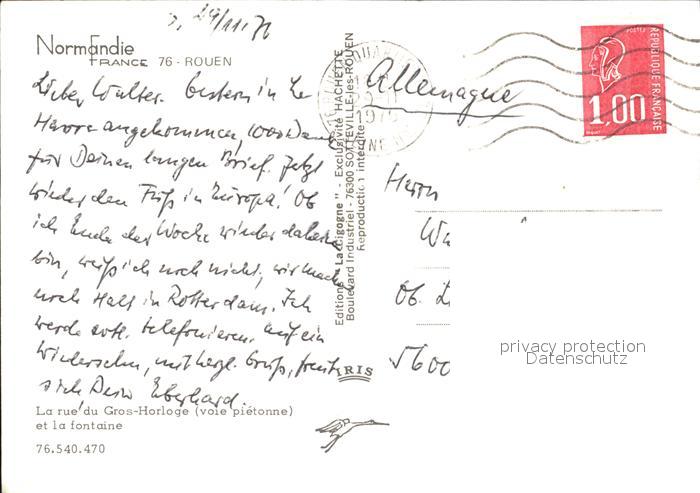 29/11.76
Normandie
FRANCE 76 - ROUEN
Lieber Walter. Gestern in Le
Havre angekommen, 1000 Dank
für Deinen langen Brief. Jetzt
wieder den Fuß in Europa! Ob
ich Ende der Woche wieder daheim
bin, weiß ich noch nicht, wir machen
noch Halt in Rotterdam. Ich
werde evtl. telefonieren. Auf ein
Wiedersehn, mit herzl. Gruß, freut
sich Dein Eberhard.
La rue du Gros-Horloge (voie piétonne)
et la fontaine
76.540.470
Editions "La Cigogne" - Exclusivité HACHETTE
Boulevard Industriel - 76300 SOTTEVILLE-lès-ROUEN
Reproduction interdite
IRIS
1976
POSTES
RÉPUBLIQUE FRANÇAISE
1,00
Allemagne
Herrn
Wa
Ob.
5600
privacy protection
Datenschutz